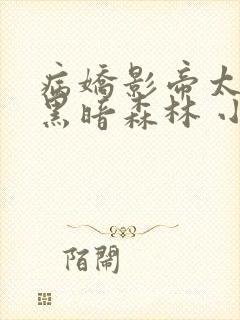 病嬌影帝太
黑暗森林 小
陌鬧